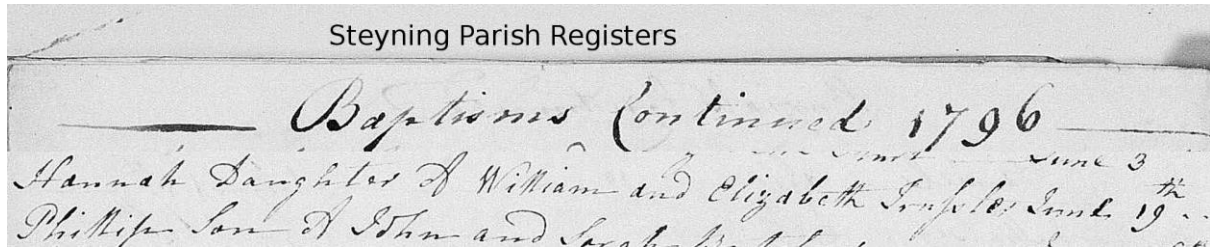 Steyning Parish Registers
Baptisms Continued 1796
June 3
Hannah Daughter of William and Elizabeth Trussler June 19th
Phillip Son of John and Sarah